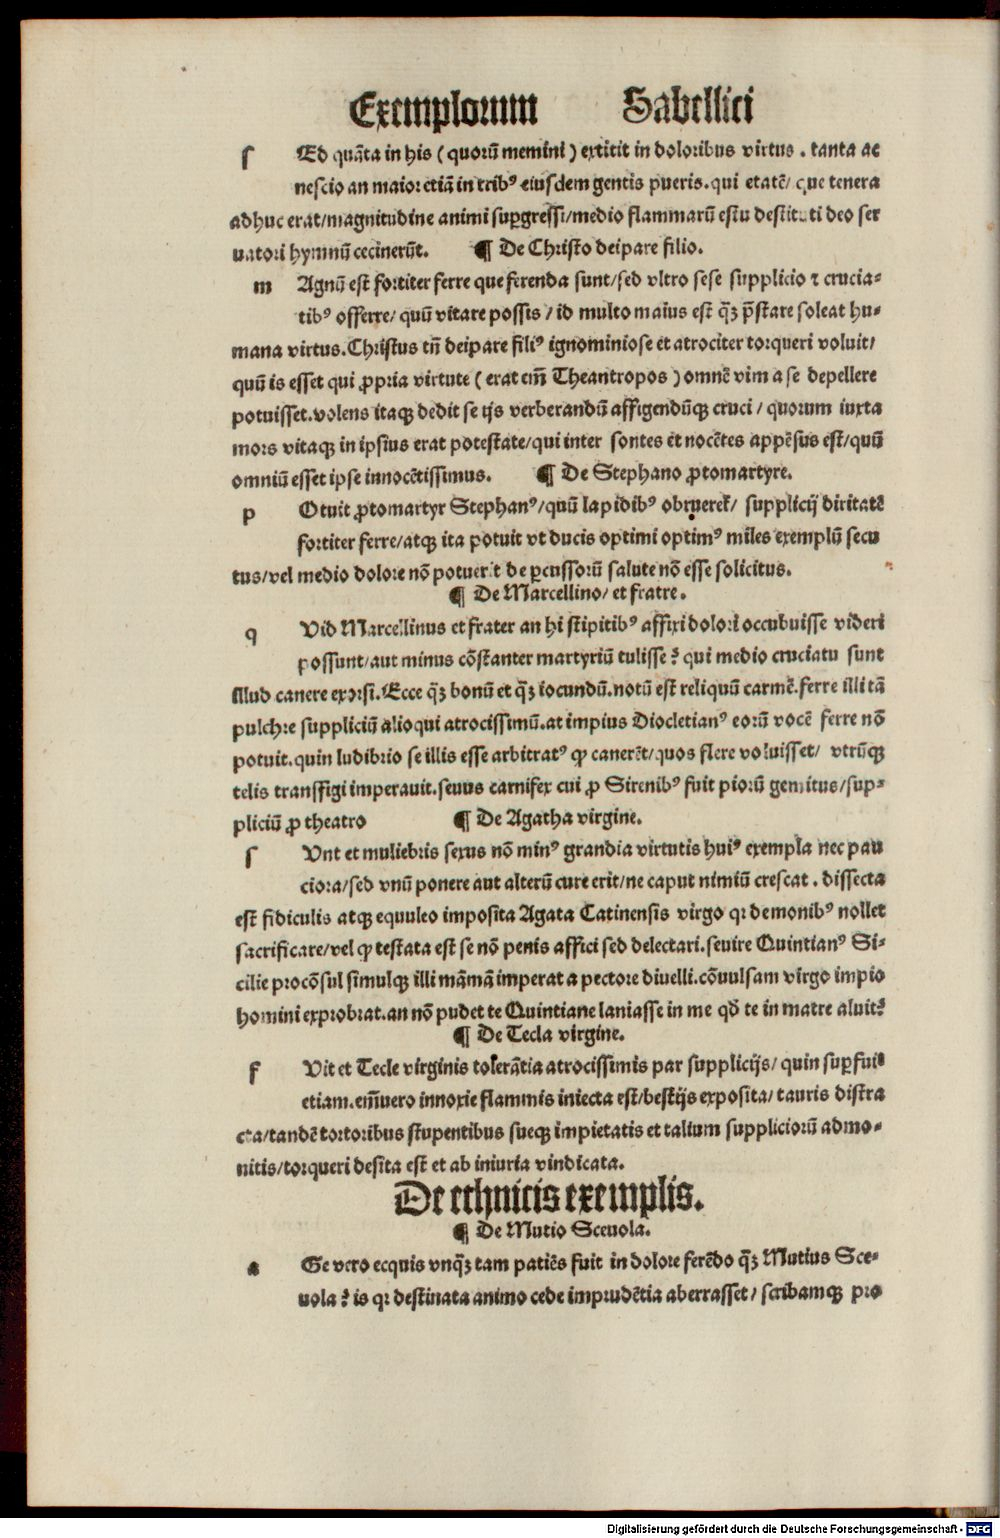 Exemplorum Sabellici
ſ Ed quãta in his ( quorũ memini ) extitit in doloribus virtus . tanta ac
nescio an maior etiã in trib⁹ eiusdem gentis pueris. qui etatẽ/ que tenera
adhuc erat/magnitudine animi suꝑgressi/medio flammarũ estu destituti deo ser
uatori hymnũ cecinerũt. ¶ De Christo deipare filio.
m Agnũ est fortiter ferre que ferenda sunt/sed vltro sese supplicio ⁊ crucia⸗
tib⁹ offerre/ quũ vitare possis / id multo maius est q̃ʒ p̃stare soleat hu⸗
mana virtus. Christus tñ deipare fili⁹ ignominiose et atrociter torqueri voluit/
quũ is esset qui ꝓpria virtute ( erat em̃ Theantropos ) omnẽ vim a se depellere
potuisset. volens itaqʒ dedit se ijs verberandũ affigendũqʒ cruci / quorum iuxta
mors vitaqʒ in ipsius erat potestate/qui inter sontes et nocẽtes appẽsus est/quũ
omniũ esset ipse innocẽtissimus. ¶ De Stephano ꝓtomartyre.
p Otuit ꝓtomartyr Stephan⁹/quũ lapidib⁹ obrueret̃/ supplicij diritatẽ
fortiter ferre/atqʒ ita potuit vt ducis optimi optim⁹ miles exemplũ secu
tus/vel medio dolore nõ potuerit de ꝑcussorũ salute nõ esse solicitus.
¶ De Marcellino/ et fratre.
q Vid Marcellinus et frater an hi stipitib⁹ affixi dolori occubuisse videri
possunt/aut minus cõstanter martyriũ tulisse ? qui medio cruciatu sunt
illud canere exorsi. Ecce q̃ʒ bonũ et q̃ʒ iocundũ. notũ est reliquũ carmẽ. ferre illi tã
pulchre suppliciũ alioqui atrocissimũ. at impius Diocletian⁹ eorũ vocẽ ferre nõ
potuit. quin ludibrio se illis esse arbitrat⁹ ꝙ canerẽt/quos flere voluisset/ vtrũqʒ
telis transffigi imperauit. seuus carnifex cui ꝓ Sirenib⁹ fuit piorũ gemitus/sup⸗
pliciũ ꝓ theatro ¶ De Agatha virgine.
ſ Vnt et muliebris sexus nõ min⁹ grandia virtutis hui⁹ exempla nec pau
ciora/sed vnũ ponere aut alterũ cure erit/ne caput nimiũ crescat . dissecta
est fidiculis atqʒ equuleo imposita Agata Catinensis virgo qꝛ demonib⁹ nollet
sacrificare/vel ꝙ testata est se nõ penis affici sed delectari. seuire Quintian⁹ Si⸗
cilie procõsul simulqʒ illi mãmã imperat a pectore diuelli. cõuulsam virgo impio
homini exprobrat. an nõ pudet te Quintiane laniasse in me qd̃ te in matre aluit?
¶ De Tecla virgine.
f Vit et Tecle virginis tolerãtia atrocissimis par supplicijs/ quin suꝑfuit
etiam. em̃uero innoxie flammis iniecta est/bestijs exposita/ tauris distra
cta/tandẽ tortoribus stupentibus sueqʒ impietatis et talium suppliciorũ admo⸗
nitis/torqueri desita est et ab iniuria vindicata.
De ethnicis exemplis.
¶ De Mutio Sceuola.
a Ge vero ecquis vnq̃ʒ tam patiẽs fuit in dolore ferẽdo q̃ʒ Mutius Sce⸗
uola ? is qꝛ destinata animo cede imprudẽtia aberrasset/ scribamqʒ pro
Digitalisierung gefördert durch die Deutsche Forschungsgemeinschaft - DFG